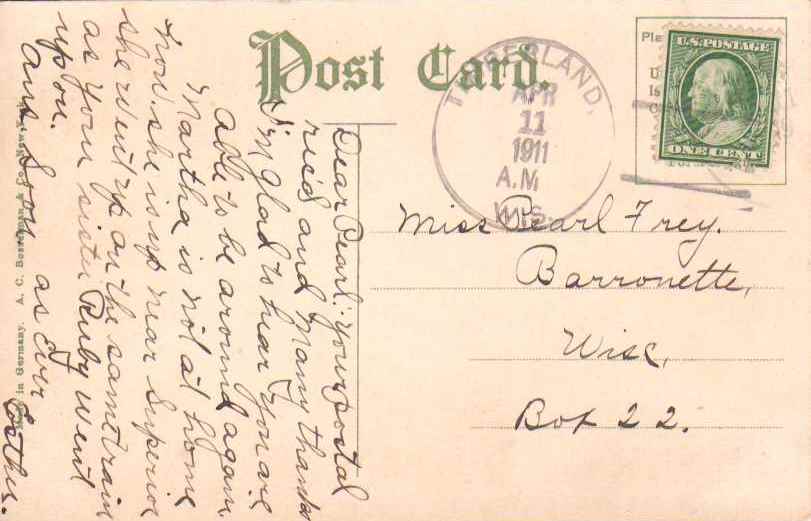 Post Card.
TIMBERLAND,
APR
11
1911
A.M.
WIS.
U.S. POSTAGE
ONE CENT
Miss Pearl Frey.
Barronette,
Wisc,
Box 22.
Dear Pearl: Your postal
recd and many thanks
I'm glad to hear you are
able to be around again.
Martha is not at home
now. she is up near Superior
she went up on the same train
as your sister Ruby went
up on.
Ans Soon as Ever
Esther.
in Germany. A. C. Bosselman & Co. New